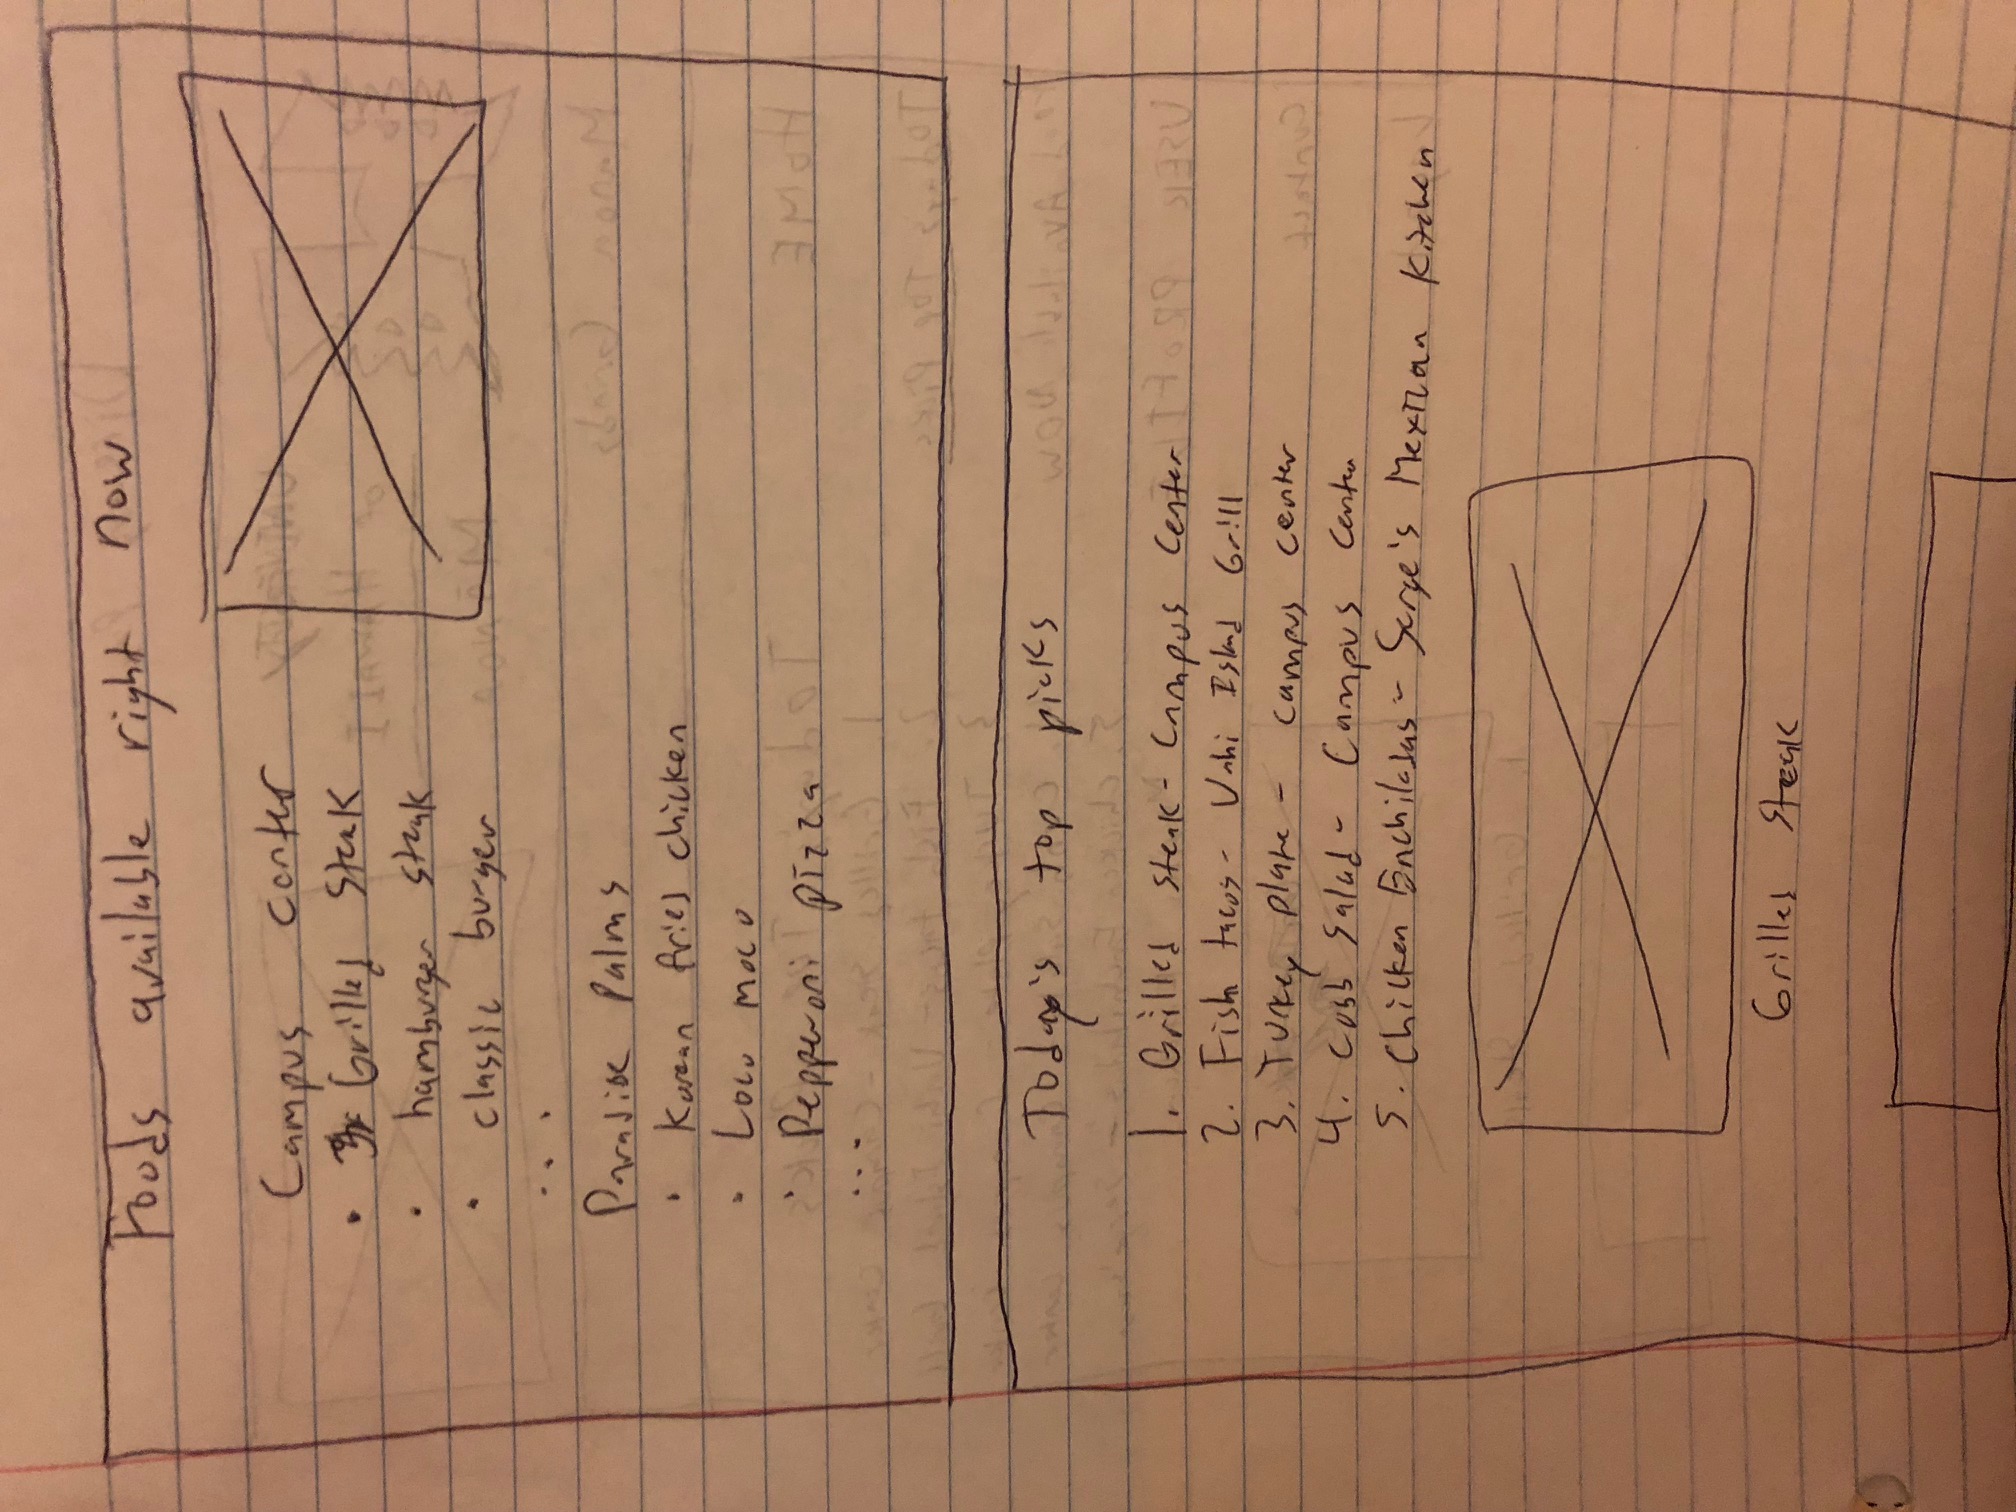 Foods available right now
Campus center
• Grilled Steak
• hamburger steak
• classic burger
...
Paradise Palms
• Korean fried chicken
• Loco moco
• Pepperoni pizza
...
Today's top picks
1. Grilled steak - Campus Center
2. Fish tacos - Uahi Island Grill
3. Turkey plate - campus center
4. Cobb Salad - Campus Center
5. Chicken Enchiladas - Serge's Mexican Kitchen
Grilled Steak